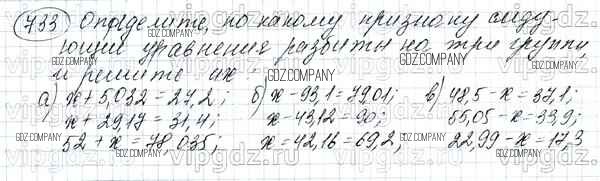 733 Определите, по какому признаку следу-
ющие уравнения разбиты на три группы,
и решите их:
а) x + 5,032 = 27,2; б) x - 93,1 = 79,01; в) 48,5 - x = 37,1;
x + 29,17 = 31,4; x - 43,12 = 90; 55,05 - x = 33,9;
52 + x = 78,035; x = 42,16 = 69,2; 22,99 - x = 17,3
GDZ.COMPANY
vipgdz.ru